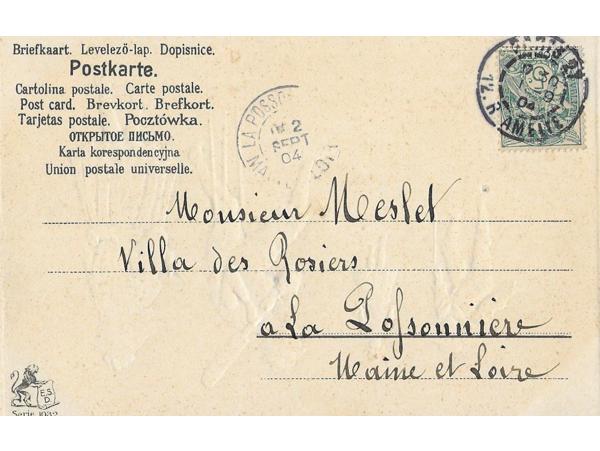 Briefkaart. Levelező-lap. Dopisnice.
Postkarte.
Cartolina postale. Carte postale.
Post card. Brevkort. Brefkort.
Tarjetas postale. Pocztówka.
ОТКРЫТОЕ ПИСЬМО.
Karta korespondencyjna
Union postale universelle.
LA POSSO
2
SEPT
04
PARIS
04
12. R AMELIE
Monsieur Meslet
Villa des Rosiers
a La Possonnière
Maine et Loire
E.S.
D.
Serie 1032